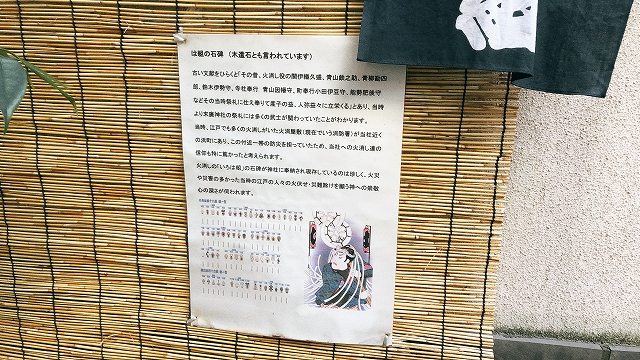 は組の石碑 (木遣石とも言われています)
古い文献をひらくと「その昔、火消し役の間伊織久盛、青山鉄之助、青柳勘四
郎、鈴木伊勢守、寺社奉行 青山因幡守、町奉行小田伊豆守、能勢肥後守
などその当時祭礼に仕え奉りて産子の益、人弥益々に立栄くる」とあり、当時
より末廣神社の祭礼には多くの武士が関わっていたことがわかります。
当時、江戸でも多くの火消しがいた火消屋敷(現在でいう消防署)が当社近く
の浜町にあり、この付近一帯の防災を担っていたため、当社への火消し達の
信仰も特に篤かったと考えられます。
火消しの「いろは組」の石碑が神社に奉納され現存しているのは珍しく、火災
や災害の多かった当時の江戸の人々の火伏せ・災難除けを願う神への崇敬
心の深さが伺われます。